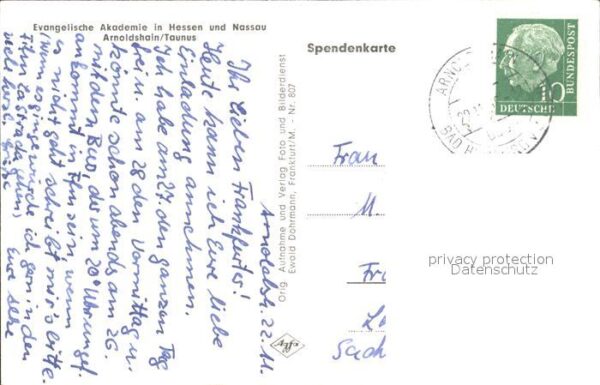 Evangelische Akademie in Hessen und Nassau
Arnoldshain/Taunus
Spendenkarte
Arnoldsh. 22. 11.
Ihr lieben Frankfurter!
Heute kann ich Eure liebe
Einladung annehmen.
Ich habe am 27. den ganzen Tag
frei u. am 28 den Vormittag u.
könnte schon abends am 26.
mit dem Bus, der um 20° Uhr ungef.
ankommt in Ffm sein, wenn
es nicht geht schreibt mir's bitte.
Wenn es ginge würde ich gern in den
Film La Strada gehen
viele herzl. Grüße
Eure
Orig. Aufnahme und Verlag Foto und Bilderdienst
Ewald Dohrmann, Frankfurt/M. - Nr. 807
Frau
M.
Fr
Sach
DEUTSCHE
BUNDESPOST
10
ARNOLDSHAIN
BAD HOMBURG
privacy protection
Datenschutz